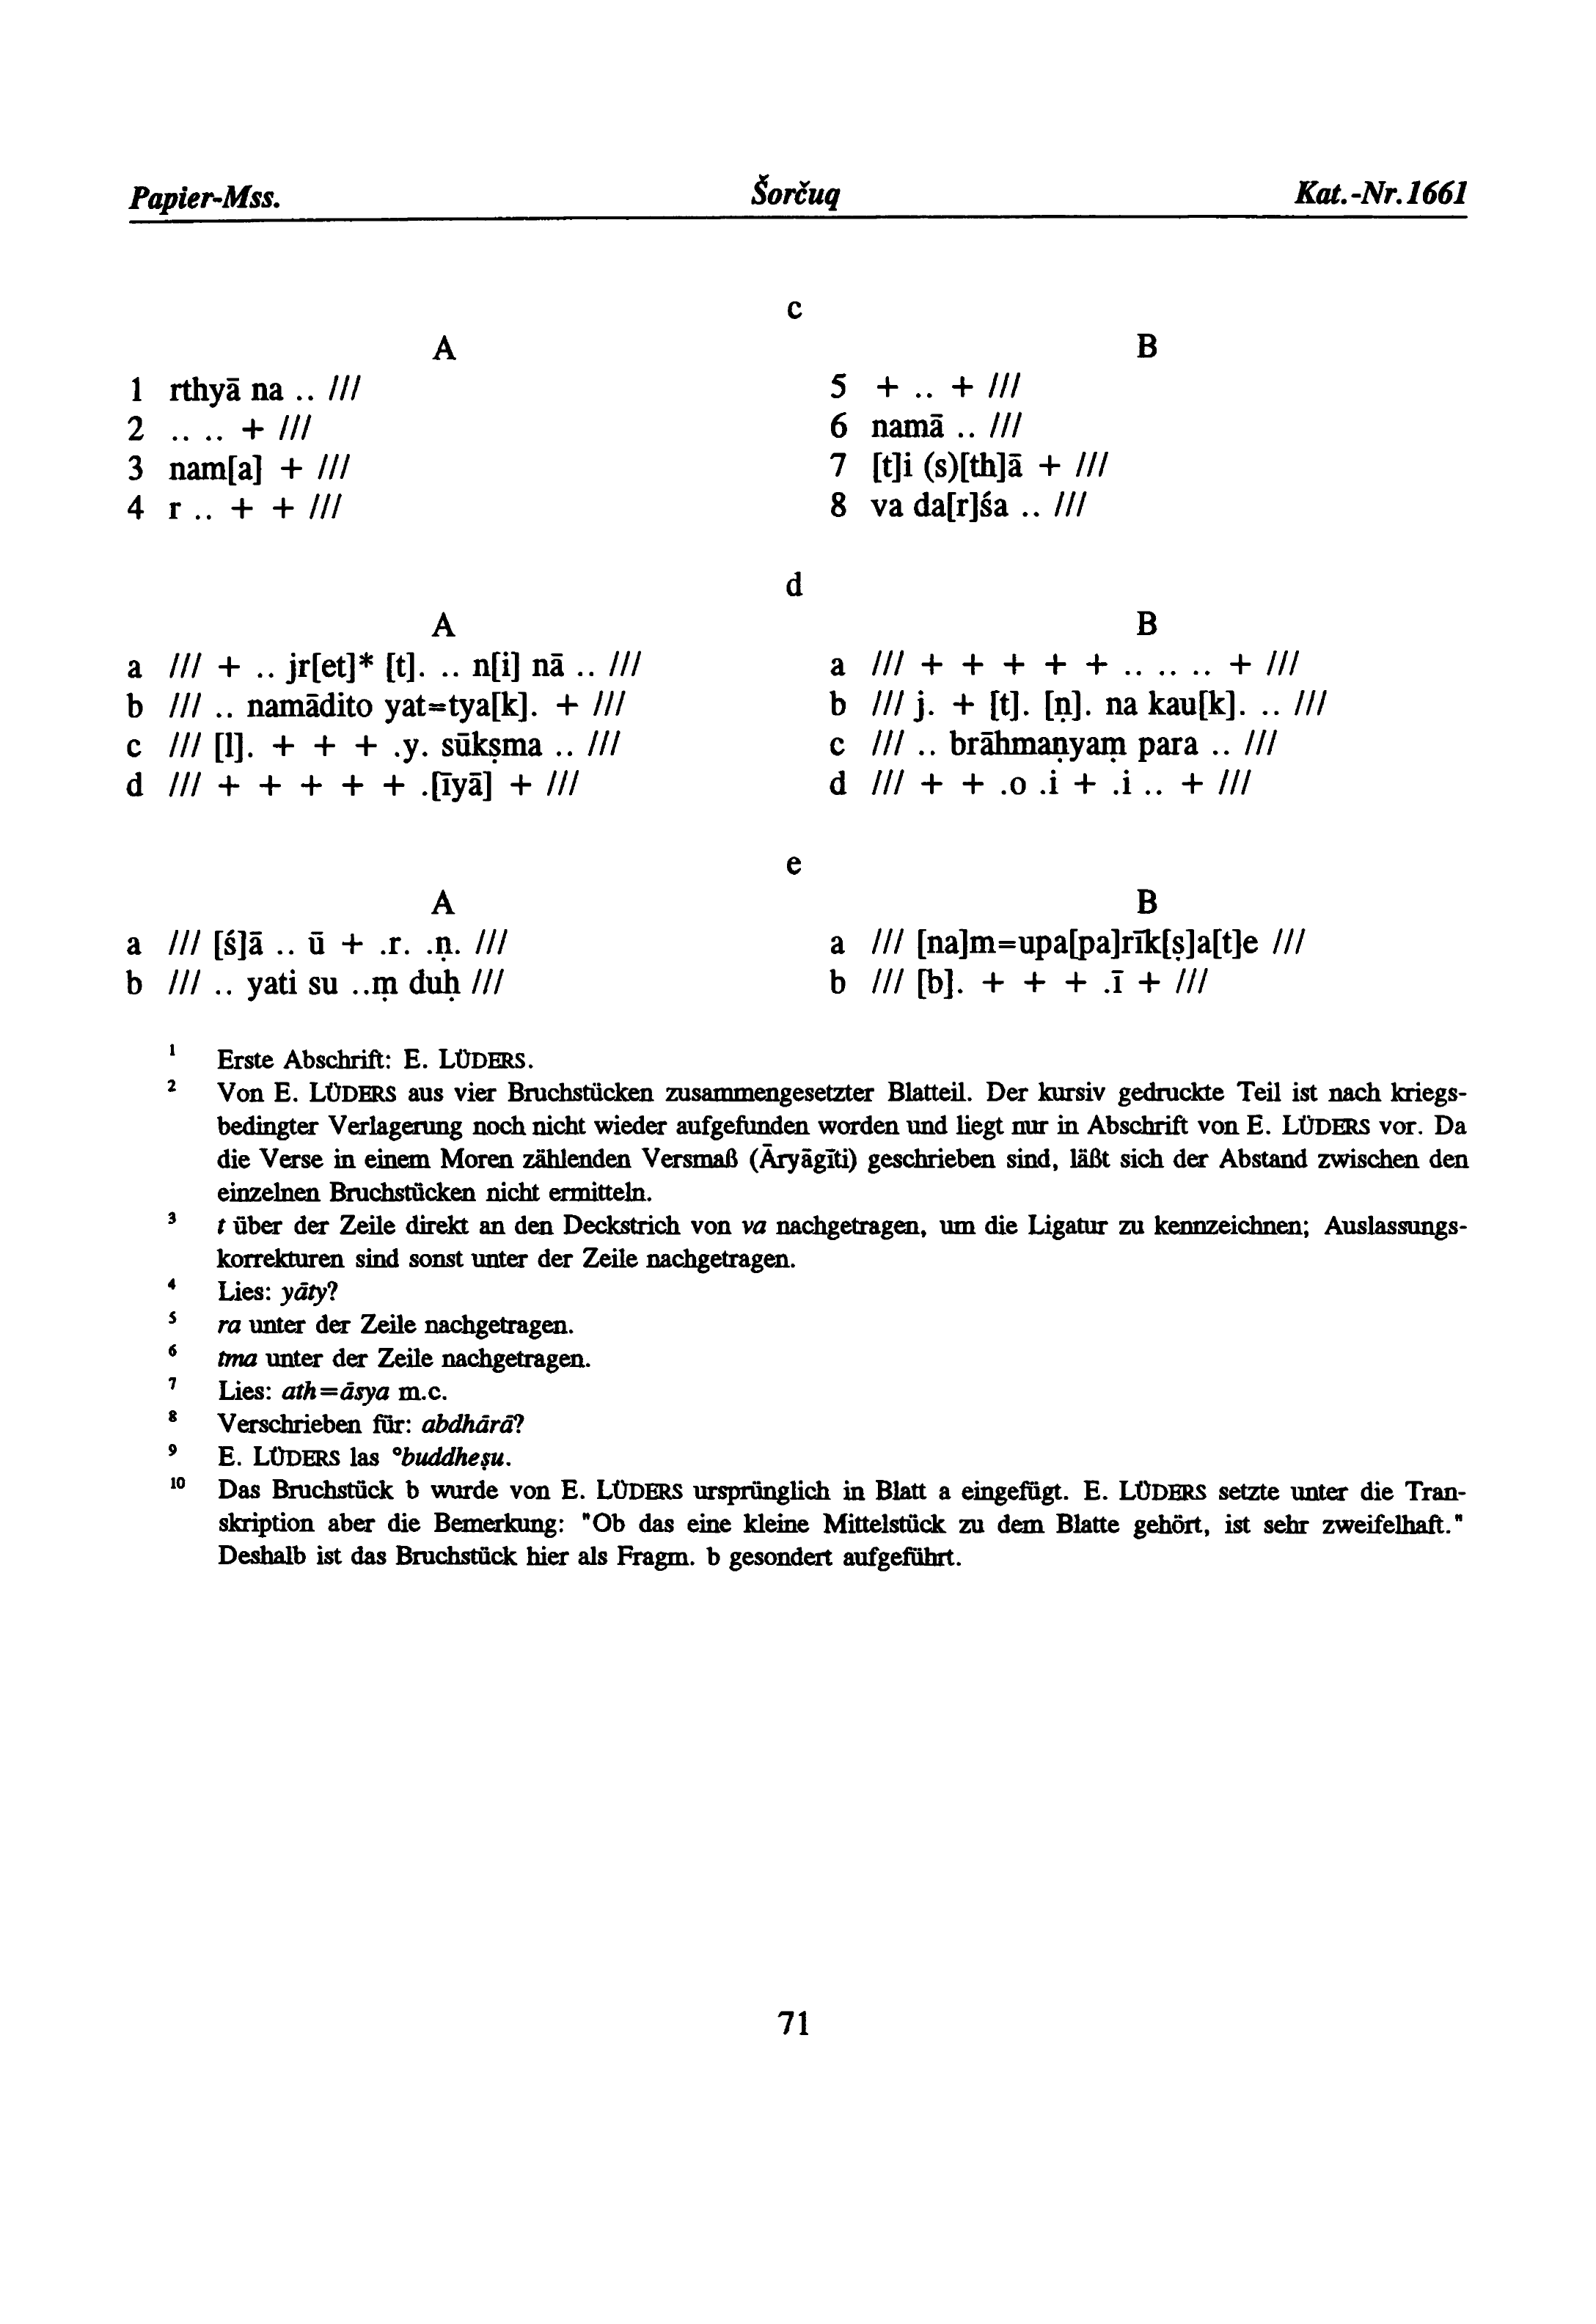 Papier-Mss. Šorčuq Kat.-Nr. 1661
c
A
1 rthyā na .. ///
2 .. .. + ///
3 nam[a] + ///
4 r .. + + ///
B
5 + .. + ///
6 namā .. ///
7 [t]i (s)[th]ā + ///
8 va da[r]śa .. ///
d
A
a /// + .. jr[et]* [t]. .. n[i] nā .. ///
b /// .. namādito yat=tya[k]. + ///
c /// [l]. + + + .y. sūkṣma .. ///
d /// + + + + + .[īyā] + ///
B
a /// + + + + + .. .. .. + ///
b /// j. + [t]. [ṇ]. na kau[k]. .. ///
c /// .. brāhmaṇyaṃ para .. ///
d /// + + .o .i + .i .. + ///
e
A
a /// [ś]ā .. ū + .r. .ṇ. ///
b /// .. yati su ..ṃ duḥ ///
B
a /// [na]m=upa[pa]rīk[ṣ]a[t]e ///
b /// [b]. + + + .ī + ///
1 Erste Abschrift: E. LÜDERS.
2 Von E. LÜDERS aus vier Bruchstücken zusammengesetzter Blatteil. Der kursiv gedruckte Teil ist nach kriegs-
bedingter Verlagerung noch nicht wieder aufgefunden worden und liegt nur in Abschrift von E. LÜDERS vor. Da
die Verse in einem Moren zählenden Versmaß (Āryāgīti) geschrieben sind, läßt sich der Abstand zwischen den
einzelnen Bruchstücken nicht ermitteln.
3 t über der Zeile direkt an den Deckstrich von va nachgetragen, um die Ligatur zu kennzeichnen; Auslassungs-
korrekturen sind sonst unter der Zeile nachgetragen.
4 Lies: yāty?
5 ra unter der Zeile nachgetragen.
6 tma unter der Zeile nachgetragen.
7 Lies: ath=āsya m.c.
8 Verschrieben für: abdhārā?
9 E. LÜDERS las °buddheṣu.
10 Das Bruchstück b wurde von E. LÜDERS ursprünglich in Blatt a eingefügt. E. LÜDERS setzte unter die Tran-
skription aber die Bemerkung: "Ob das eine kleine Mittelstück zu dem Blatte gehört, ist sehr zweifelhaft."
Deshalb ist das Bruchstück hier als Fragm. b gesondert aufgeführt.
71